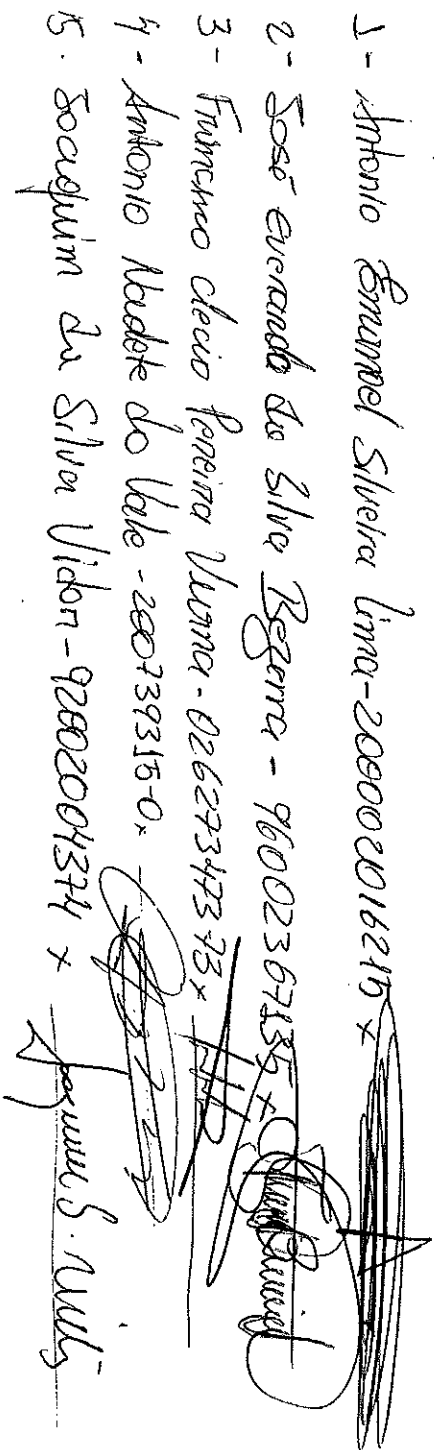 1- Antonio Emanoel Silveira Lima-2000002016245 x
2- José everando da Silva Bezerra - 96002367135 x
3- Francisco clecio Pereira Viana - 02627347373 x
4- Antonio Nadote do Vale - 200739315-0 x
5. Joaquim da Silva Vidon - 92002004374 x